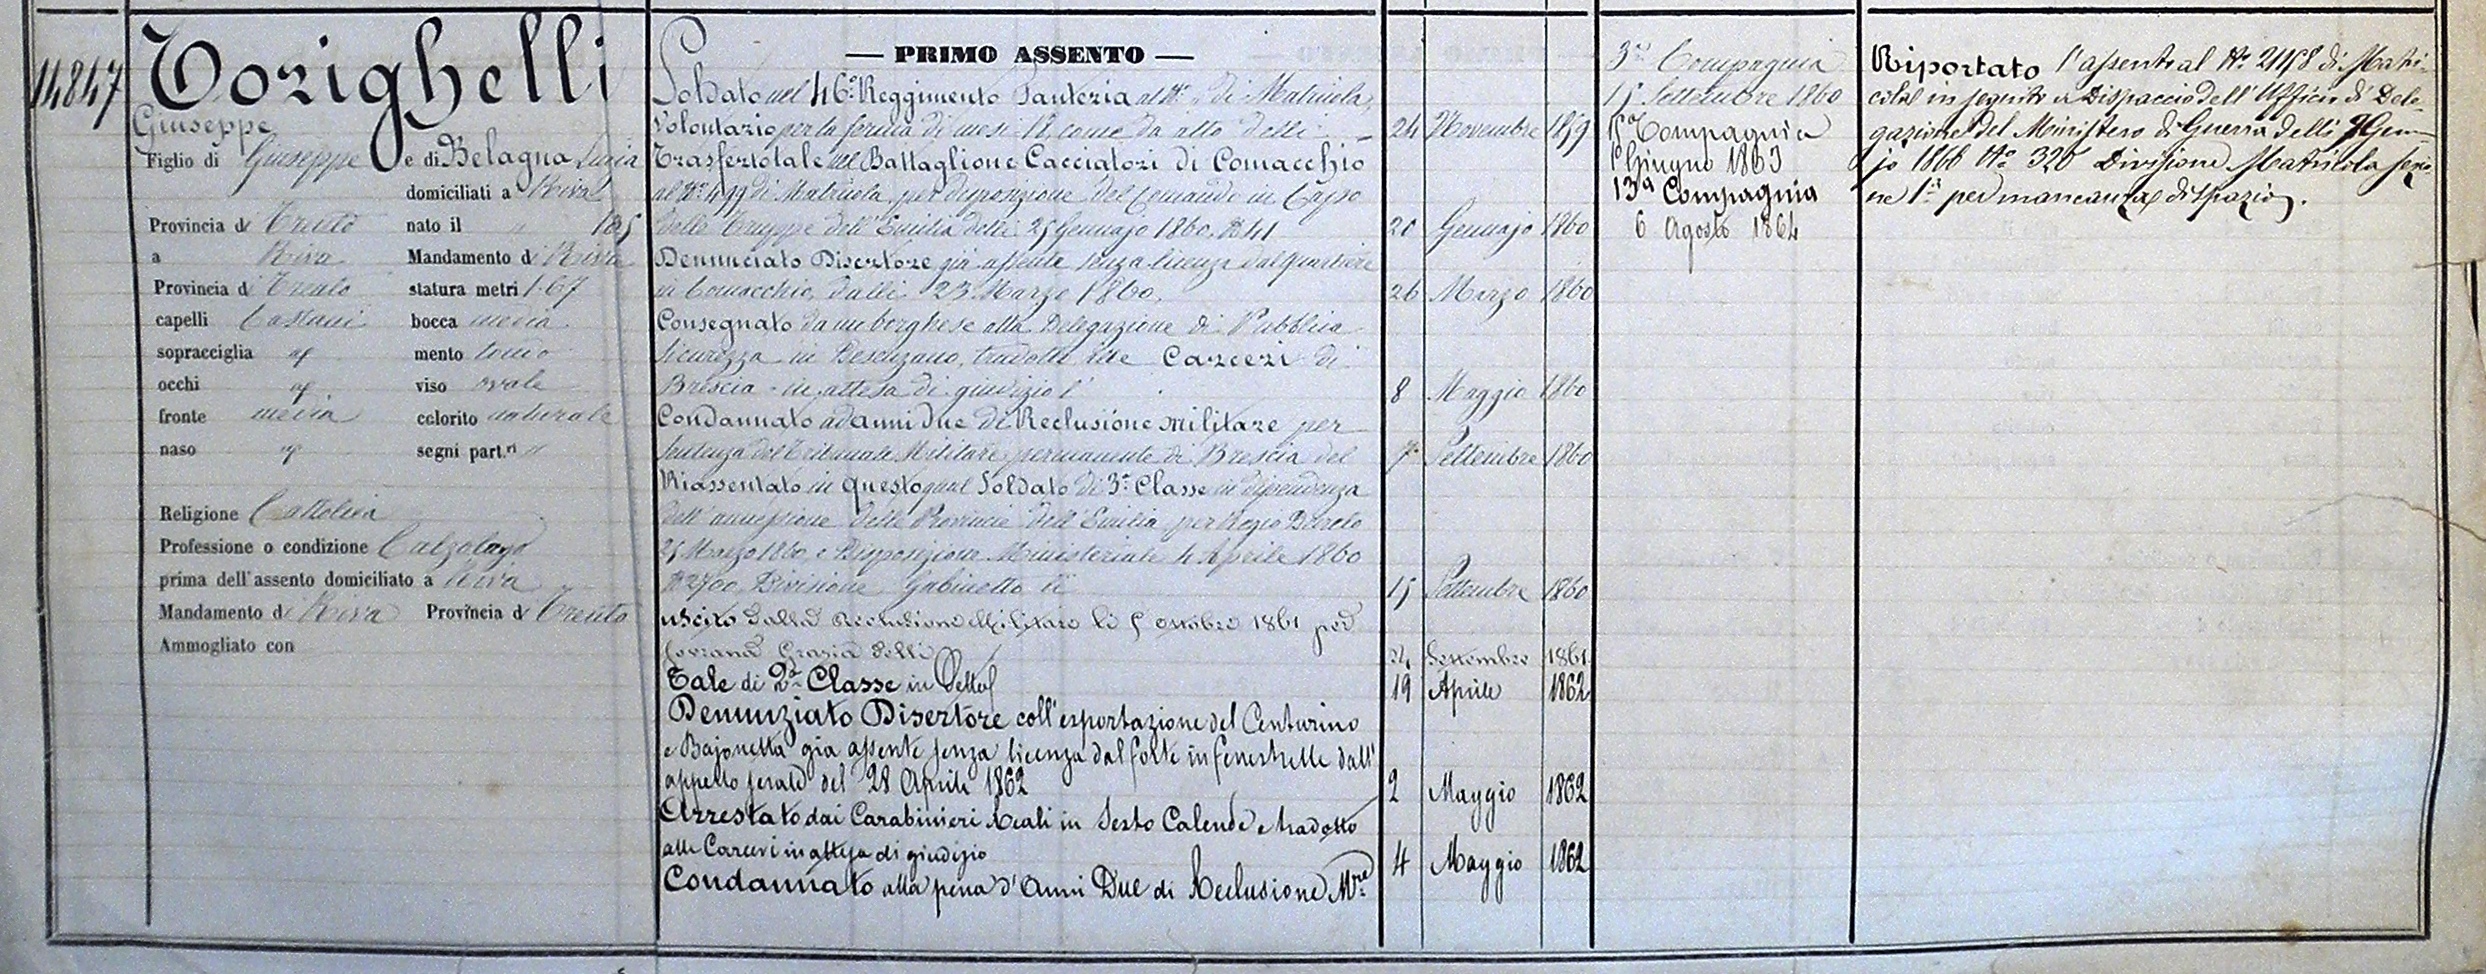 14847
Torighelli
Giuseppe
Figlio di Giuseppe e di Belagna Lucia
domiciliati a Riva
Provincia di Trento nato il " 185
a Riva Mandamento di Riva
Provincia di Trento statura metri 1.67
capelli Castani bocca media
sopracciglia id mento tondo
occhi id viso ovale
fronte media colorito naturale
naso id segni part.ri "
Religione Cattolica
Professione o condizione Calzolajo
prima dell'assento domiciliato a Riva
Mandamento di Riva Provincia di Trento
Ammogliato con
— PRIMO ASSENTO —
Soldato nel 46.o Reggimento Fanteria al N.o " di Matricola,
Volontario per la ferma di mesi 18, come da atto delli — 24 Novembre 1859
Trasferto tale nel Battaglione Cacciatori di Comacchio
al N.o 499 di Matricola, per disposizione del Comando in Capo
delle Truppe dell'Emilia delli 25 Gennajo 1860, N. 41 20 Gennajo 1860
Denunciato Disertore già assente senza licenza dal quartiere
in Comacchio, dalli 23 Marzo 1860. 26 Marzo 1860
Consegnato da un borghese alla Delegazione di Pubblica
Sicurezza in Desenzano, tradotto nelle Carceri di
Brescia in attesa di giudizio li 8 Maggio 1860
Condannato ad anni due di Reclusione militare per
Sentenza del Tribunale Militare permanente di Brescia del 7 Settembre 1860
Riassentato in questo qual Soldato di 3.a Classe in dipendenza
dell'annessione delle Provincie dell'Emilia per Regio Decreto
25 Marzo 1860 e Disposizione Ministeriale 4 Aprile 1860
N. 2700, Divisione Gabinetto li 15 Settembre 1860
uscito dalla Reclusione Militare li 5 ottobre 1861 per
Sovrana Grazia delli 24 Settembre 1861
Tale di 2.a Classe in detto 19 Aprile 1862
Denunziato Disertore coll'esportazione del Centurino
e Bajonetta già assente senza licenza dal forte in fenestrelle dall'
appello serale del 28 Aprile 1862 2 Maggio 1862
Arrestato dai Carabinieri Reali in Sesto Calende e tradotto
alle Carceri in attesa di giudizio 4 Maggio 1862
Condannato alla pena d'Anni Due di Reclusione M.re
3.a Compagnia
15 Settembre 1860
15.a Compagnia
1° Giugno 1863
13.a Compagnia
6 Agosto 1864
Riportato l'assento al N.o 21158 di Matri-
cola in seguito a Dispaccio dell'Ufficio di Dele-
gazione del Ministero di Guerra delli 9 Gena-
jo 1866 N.o 320 Divisione Matricola Sezio
ne 1.a per mancanza di spazio.